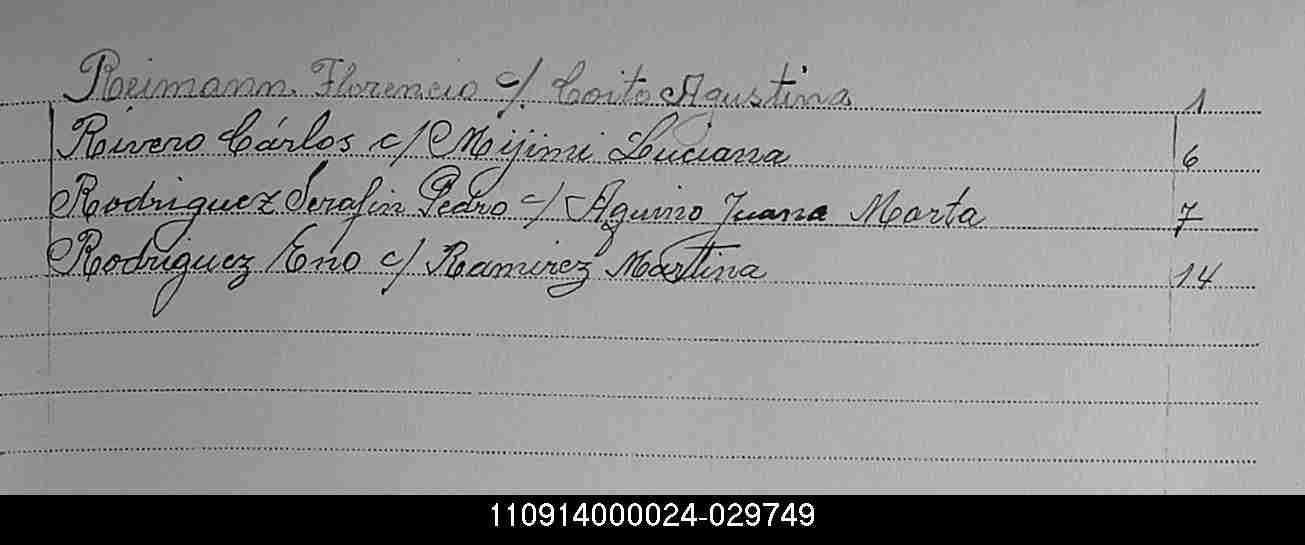 Reimann Florencio c/ Coito Agustina 1
Rivero Cárlos c/ Mijimi Luciana 6
Rodriguez Serafin Pedro c/ Aquino Juana Marta 7
Rodriguez Eno c/ Ramirez Martina 14
110914000024-029749